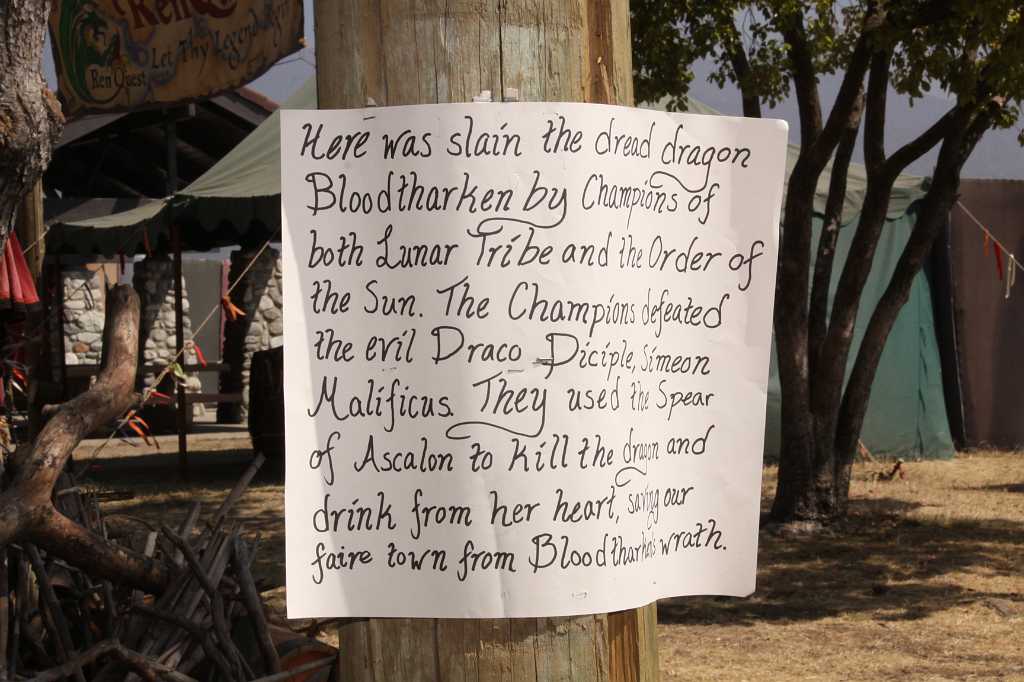 RenQ
Let Thy Legend
Ren Quest
Here was slain the dread dragon
Bloodtharken by Champions of
both Lunar Tribe and the Order of
the Sun. The Champions defeated
the evil Draco Diciple, Simeon
Malificus. They used the Spear
of Ascalon to kill the dragon and
drink from her heart, saving our
faire town from Bloodtharken's wrath.